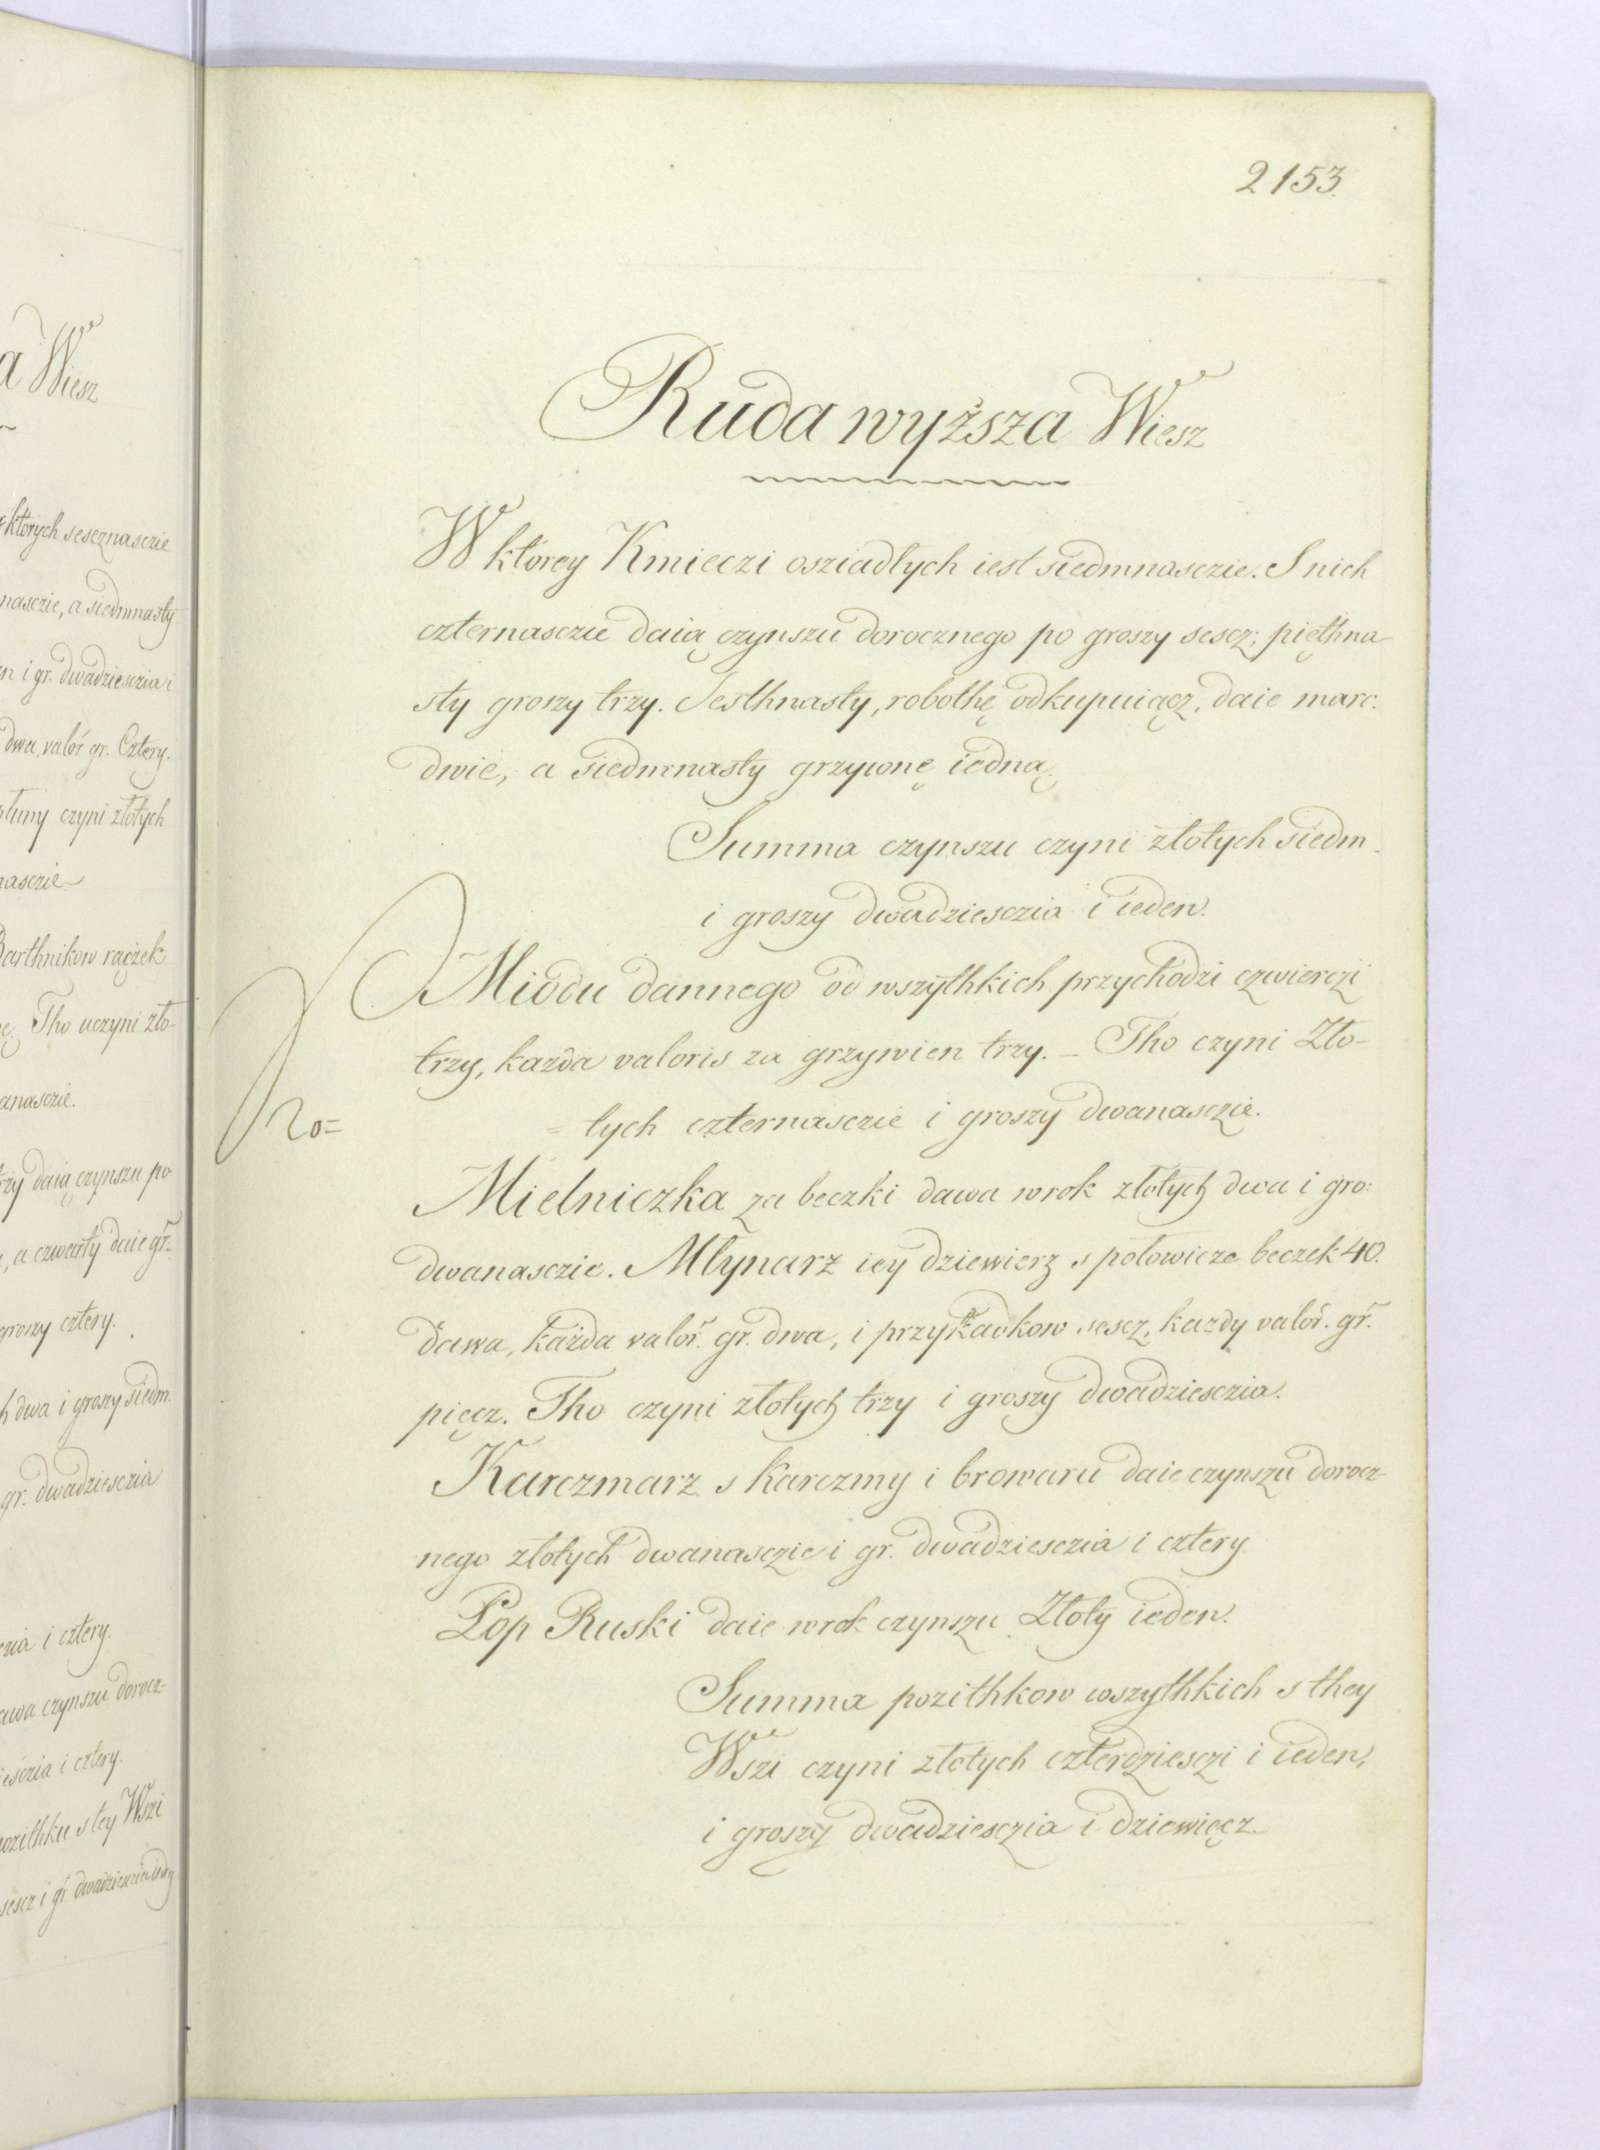 2153.
a Wiesz
których sesznasczie
nasczie, a siedmnasty
en i gr. dwadziesczia i
dwa, valor gr. Cztery.
czyni złotych
nasczie
Barthnikow rączek
Tho uczyni zło-
anasczie.
trzy daią czynszu po
, a czwarty daie gr.
groszy cztery.
h dwa i groszy siedm.
gr. dwadziesczia
czia i cztery.
awa czynszu dorocz-
iesczia i cztery.
pozithku s tey Wszi
sescz i gr dwadziesczia
Ruda wyższa Wiesz
W którey Kmieczi osziadłych iest siedmnasczie. S nich
czternasczie daią czynszu dorocznego po groszy sescz; pięthna-
sty groszy trzy. Sesthnasty, robothę odkupuiącz, daie marc.
dwie, a siedmnasty grzywnę iedną.
Summa czynszu czyni złotych siedm
i groszy dwadziesczia i ieden.
Miodu dannego od wszythkich przychodzi czwierczi
trzy, każda valoris za grzywien trzy. – Tho czyni Zło-
=tych czternasczie i groszy dwanasczie.
Mielniczka za beczki dawa wrok złotych dwa i gro:
dwanasczie. Młynarz iey dziewierz s połowicze beczek 40.
dawa, każda valor. gr. dwa, i przykadkow sescz, kazdy valor. gr.
pięcz. Tho czyni złotych trzy i groszy dwadziesczia.
Karczmarz s Karczmy i browaru daie czynszu dorocz-
nego złotych dwanasczie i gr. dwadziesczia i cztery
Pop Ruski daie wrok czynszu Złoty ieden.
Summa pozithkow wszythkich s they
Wszi czyni złotych czterdziesczi i ieden,
i groszy dwadziesczia i dziewięcz